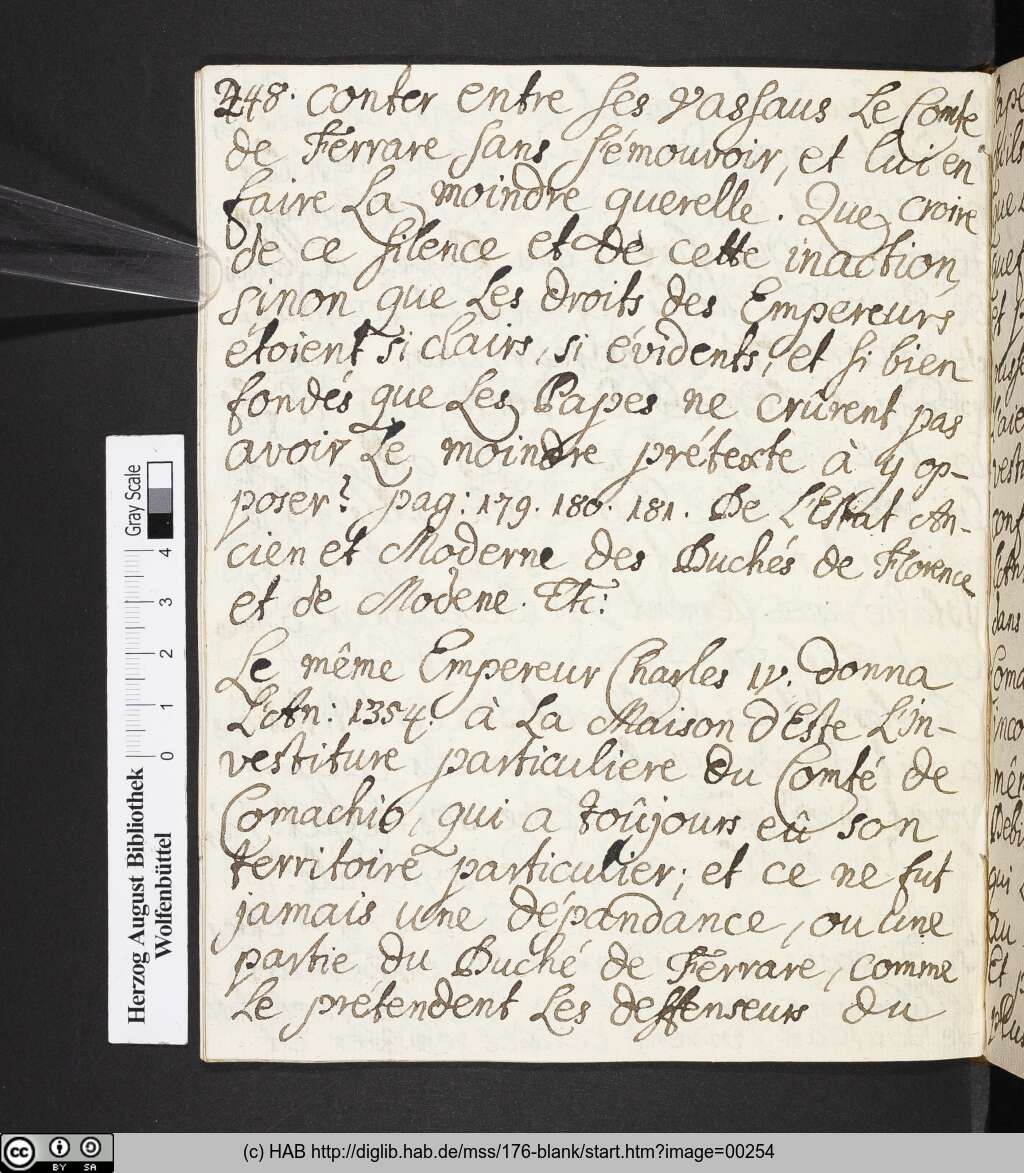 248. conter entre ses vassaus Le Comte
de Ferrare sans s'émouvoir, et lui en
faire La moindre querelle. Que croire
de ce silence et de cette inaction,
sinon que Les droits des Empereurs
étoient si clairs, si évidents, et si bien
fondés que Les Papes ne crûrent pas
avoir Le moindre prétexte à y op-
poser? pag: 179. 180. 181. De L'Estat An-
cien et Moderne des Duchés de Florence
et de Modene. Etc:
Le même Empereur Charles IV. donna
L'An: 1354. à La Maison d'Este L'in-
vestiture particuliere du Comté de
Comachio, qui a toûjours eû son
territoire particulier; et ce ne fut
jamais une dépandance, ou une
partie du Duché de Ferrare, comme
Le prétendent Les deffenseurs du
Herzog August Bibliothek
Wolfenbüttel
Gray Scale
0 1 2 3 4
(c) HAB http://diglib.hab.de/mss/176-blank/start.htm?image=00254
CC BY SA